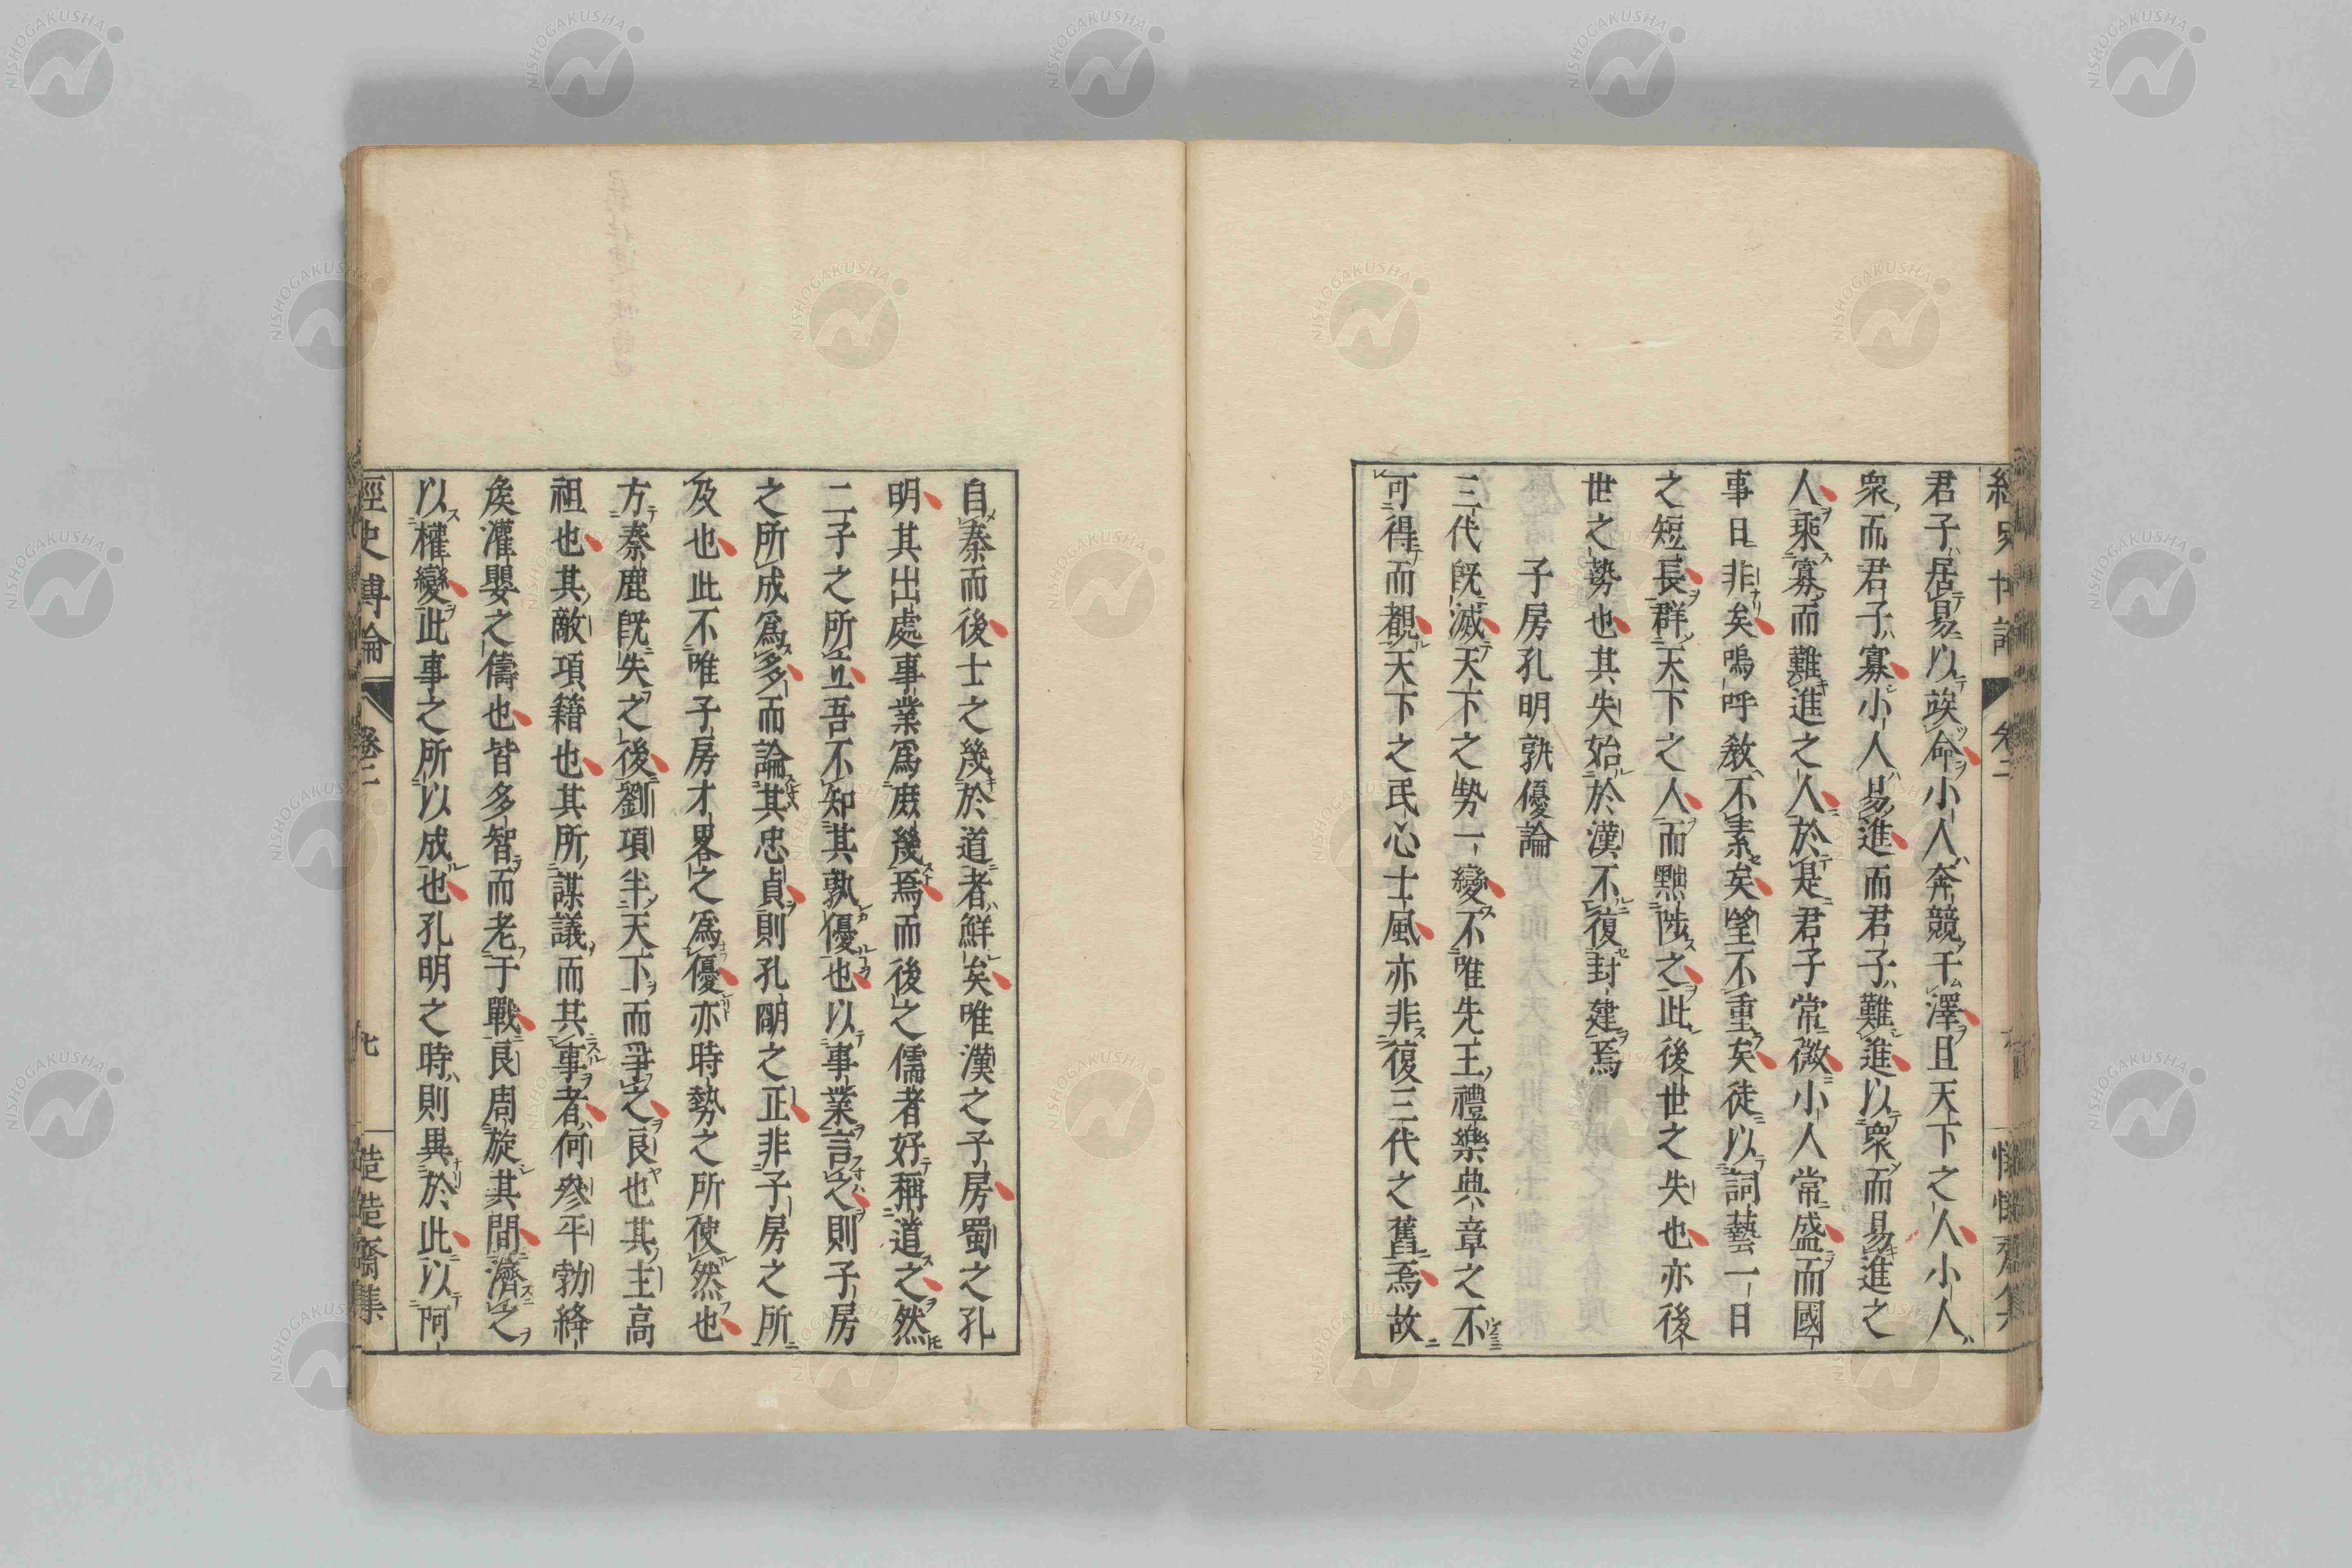 君子居易以竢命小人奔競干澤且天下之人小人
衆而君子寡小人易進而君子難進以衆而易進之
人乘寡而難進之人於是君子常微小人常盛而國
事日非矣嗚呼敎不素矣望不重矣徒以詞藝一日
之短長群天下之人而黜陟之此後世之失也亦後
世之勢也其失始於漢不復封建焉
子房孔明孰優論
三代旣滅天下之勢一變不唯先王禮樂典章之不
可得而覩天下之民心士風亦非復三代之舊焉故
自秦而後士之幾於道者鮮矣唯漢之子房蜀之孔
明其出處事業爲庶幾焉而後之儒者好稱道之然
二子之所立吾不知其孰優也以事業言之則子房
之所成爲多而論其忠貞則孔朙之正非子房之所
及也此不唯子房才畧之爲優亦時勢之所使然也
方秦鹿旣失之後劉項半天下而爭之良也其主高
祖也其敵項籍也其所謀議而其事者何參平勃絳
矦灌嬰之儔也皆多智而老于戰良周旋其間濟之
以權變此事之所以成也孔明之時則異於此以阿
經史博論 卷二 七 慥慥齋集
NISHOGAKUSHA